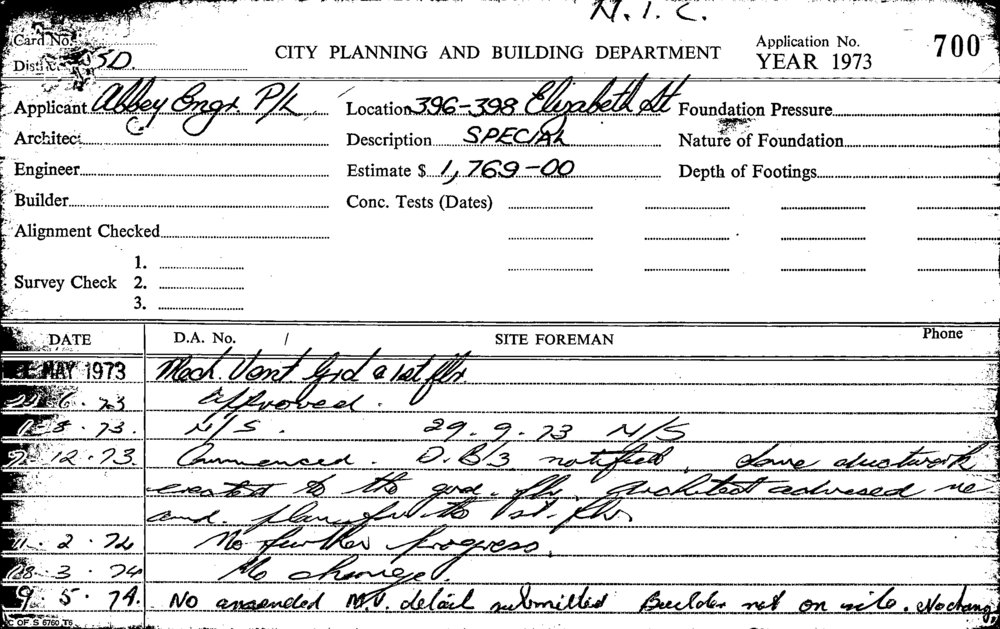 N.I.C.
Card No.
District SD.
CITY PLANNING AND BUILDING DEPARTMENT
Application No. 700
YEAR 1973
Applicant Abbey Engr P/L Location 396-398 Elizabeth St Foundation Pressure
Architect Description SPECIAL Nature of Foundation
Engineer Estimate $ 1,769-00 Depth of Footings
Builder Conc. Tests (Dates)
Alignment Checked
1.
Survey Check 2.
3.
DATE D.A. No. / SITE FOREMAN Phone
MAY 1973 Mech. Vent Grd & 1st flr.
6.73 Approved.
8.73. N/S. 29.9.73 N/S
12.73. Commenced. D.B3 notified. Some ductwork
erected to the grd. flr. Architect advised re
amd. plan for the 1st. flr
11.2.74 No further progress.
28.3.74 No change.
9.5.74. No amended M.V. detail submitted Builder not on site. No chang
C OF S 6760 T6